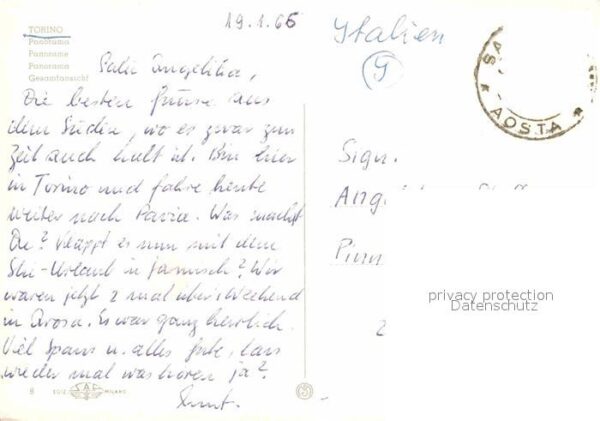 19.1.65
TORINO
Panorama
Panorame
Panorama
Gesamtansicht
Salü Angelika,
Die besten Grüsse aus
dem Süden, wo es zwar zur
Zeit auch kalt ist. Bin hier
in Torino und fahre heute
weiter nach Pavia. Was machst
Du? Klappt es nun mit dem
Ski-Urlaub in Jamisch? Wir
waren jetzt 2 mal über's Weekend
in Arosa. Es war ganz herrlich.
Viel Spass u. alles Gute, lass
wieder mal was hören ja?
8 EDIZ. S.A.C. MILANO
Italien
AOSTA
Sign.
Ang
Pinn
privacy protection
Datenschutz